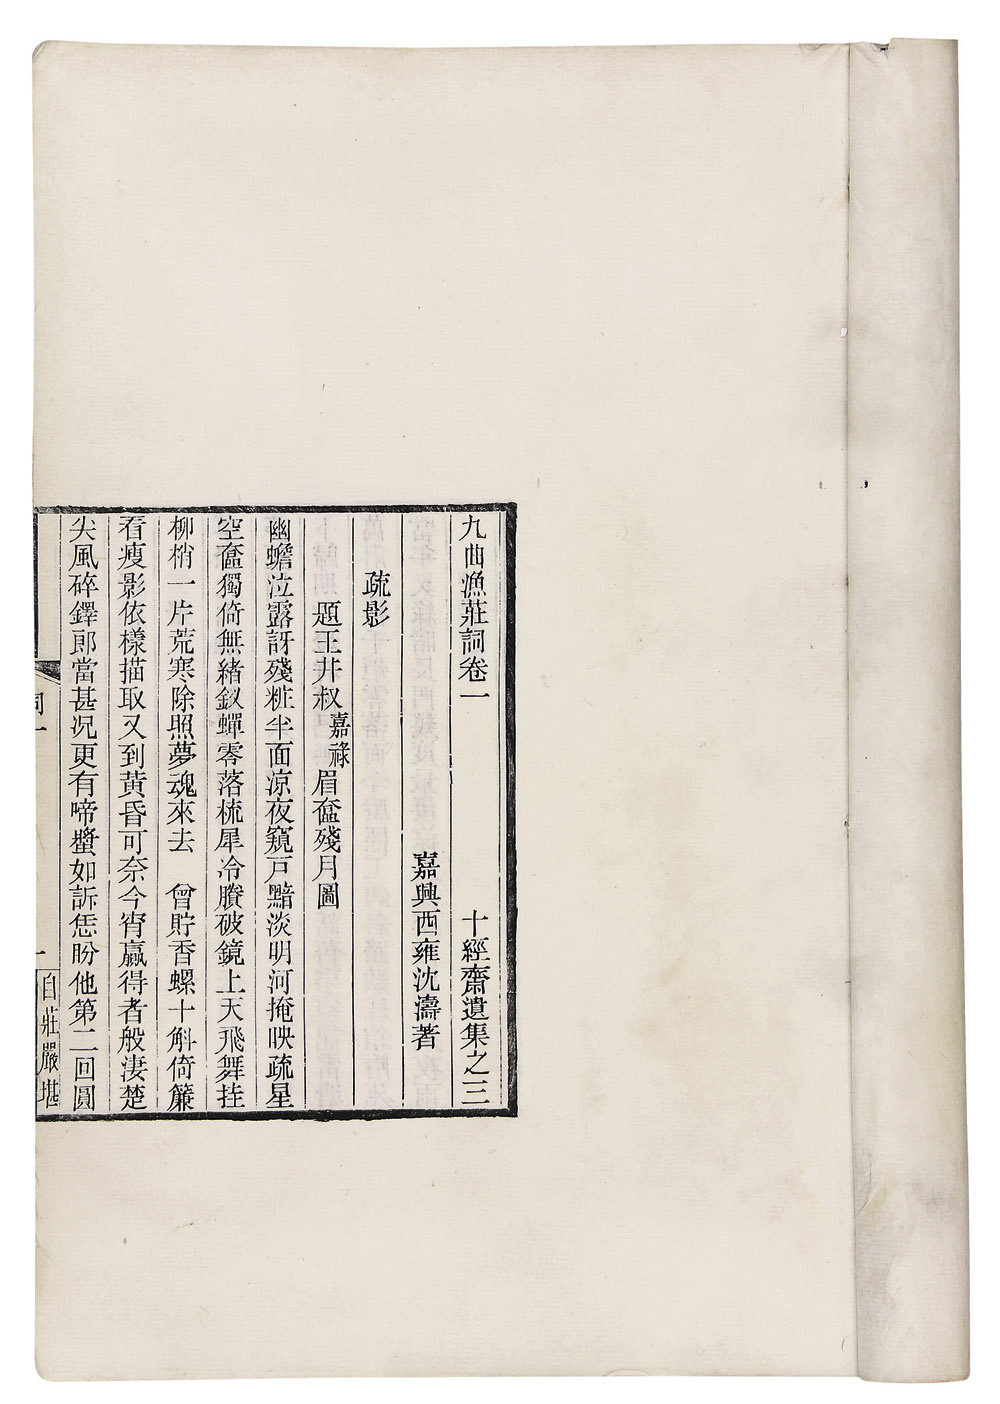 九曲漁莊詞卷一 十經齋遺集之三
嘉興西雍沈濤著
疏影
題王井叔嘉祿眉奩殘月圖
幽蟾泣露訝殘粧半面涼夜窺戸黯淡明河掩映疏星
空奩獨倚無緒釵蟬零落梳犀冷賸破鏡上天飛舞挂
柳梢一片荒寒除照夢魂來去 曾貯香螺十斛倚簾
看瘦影依樣描取又到黃昏可奈今宵贏得者般淒楚
尖風碎鐸郎當甚況更有啼螿如訴恁盼他第二回圓
詞一
一
自莊嚴堪